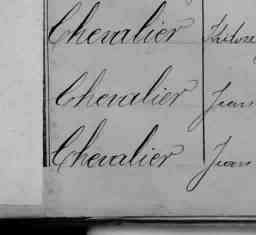 Chevalier
Chevalier Jean
Chevalier Jean